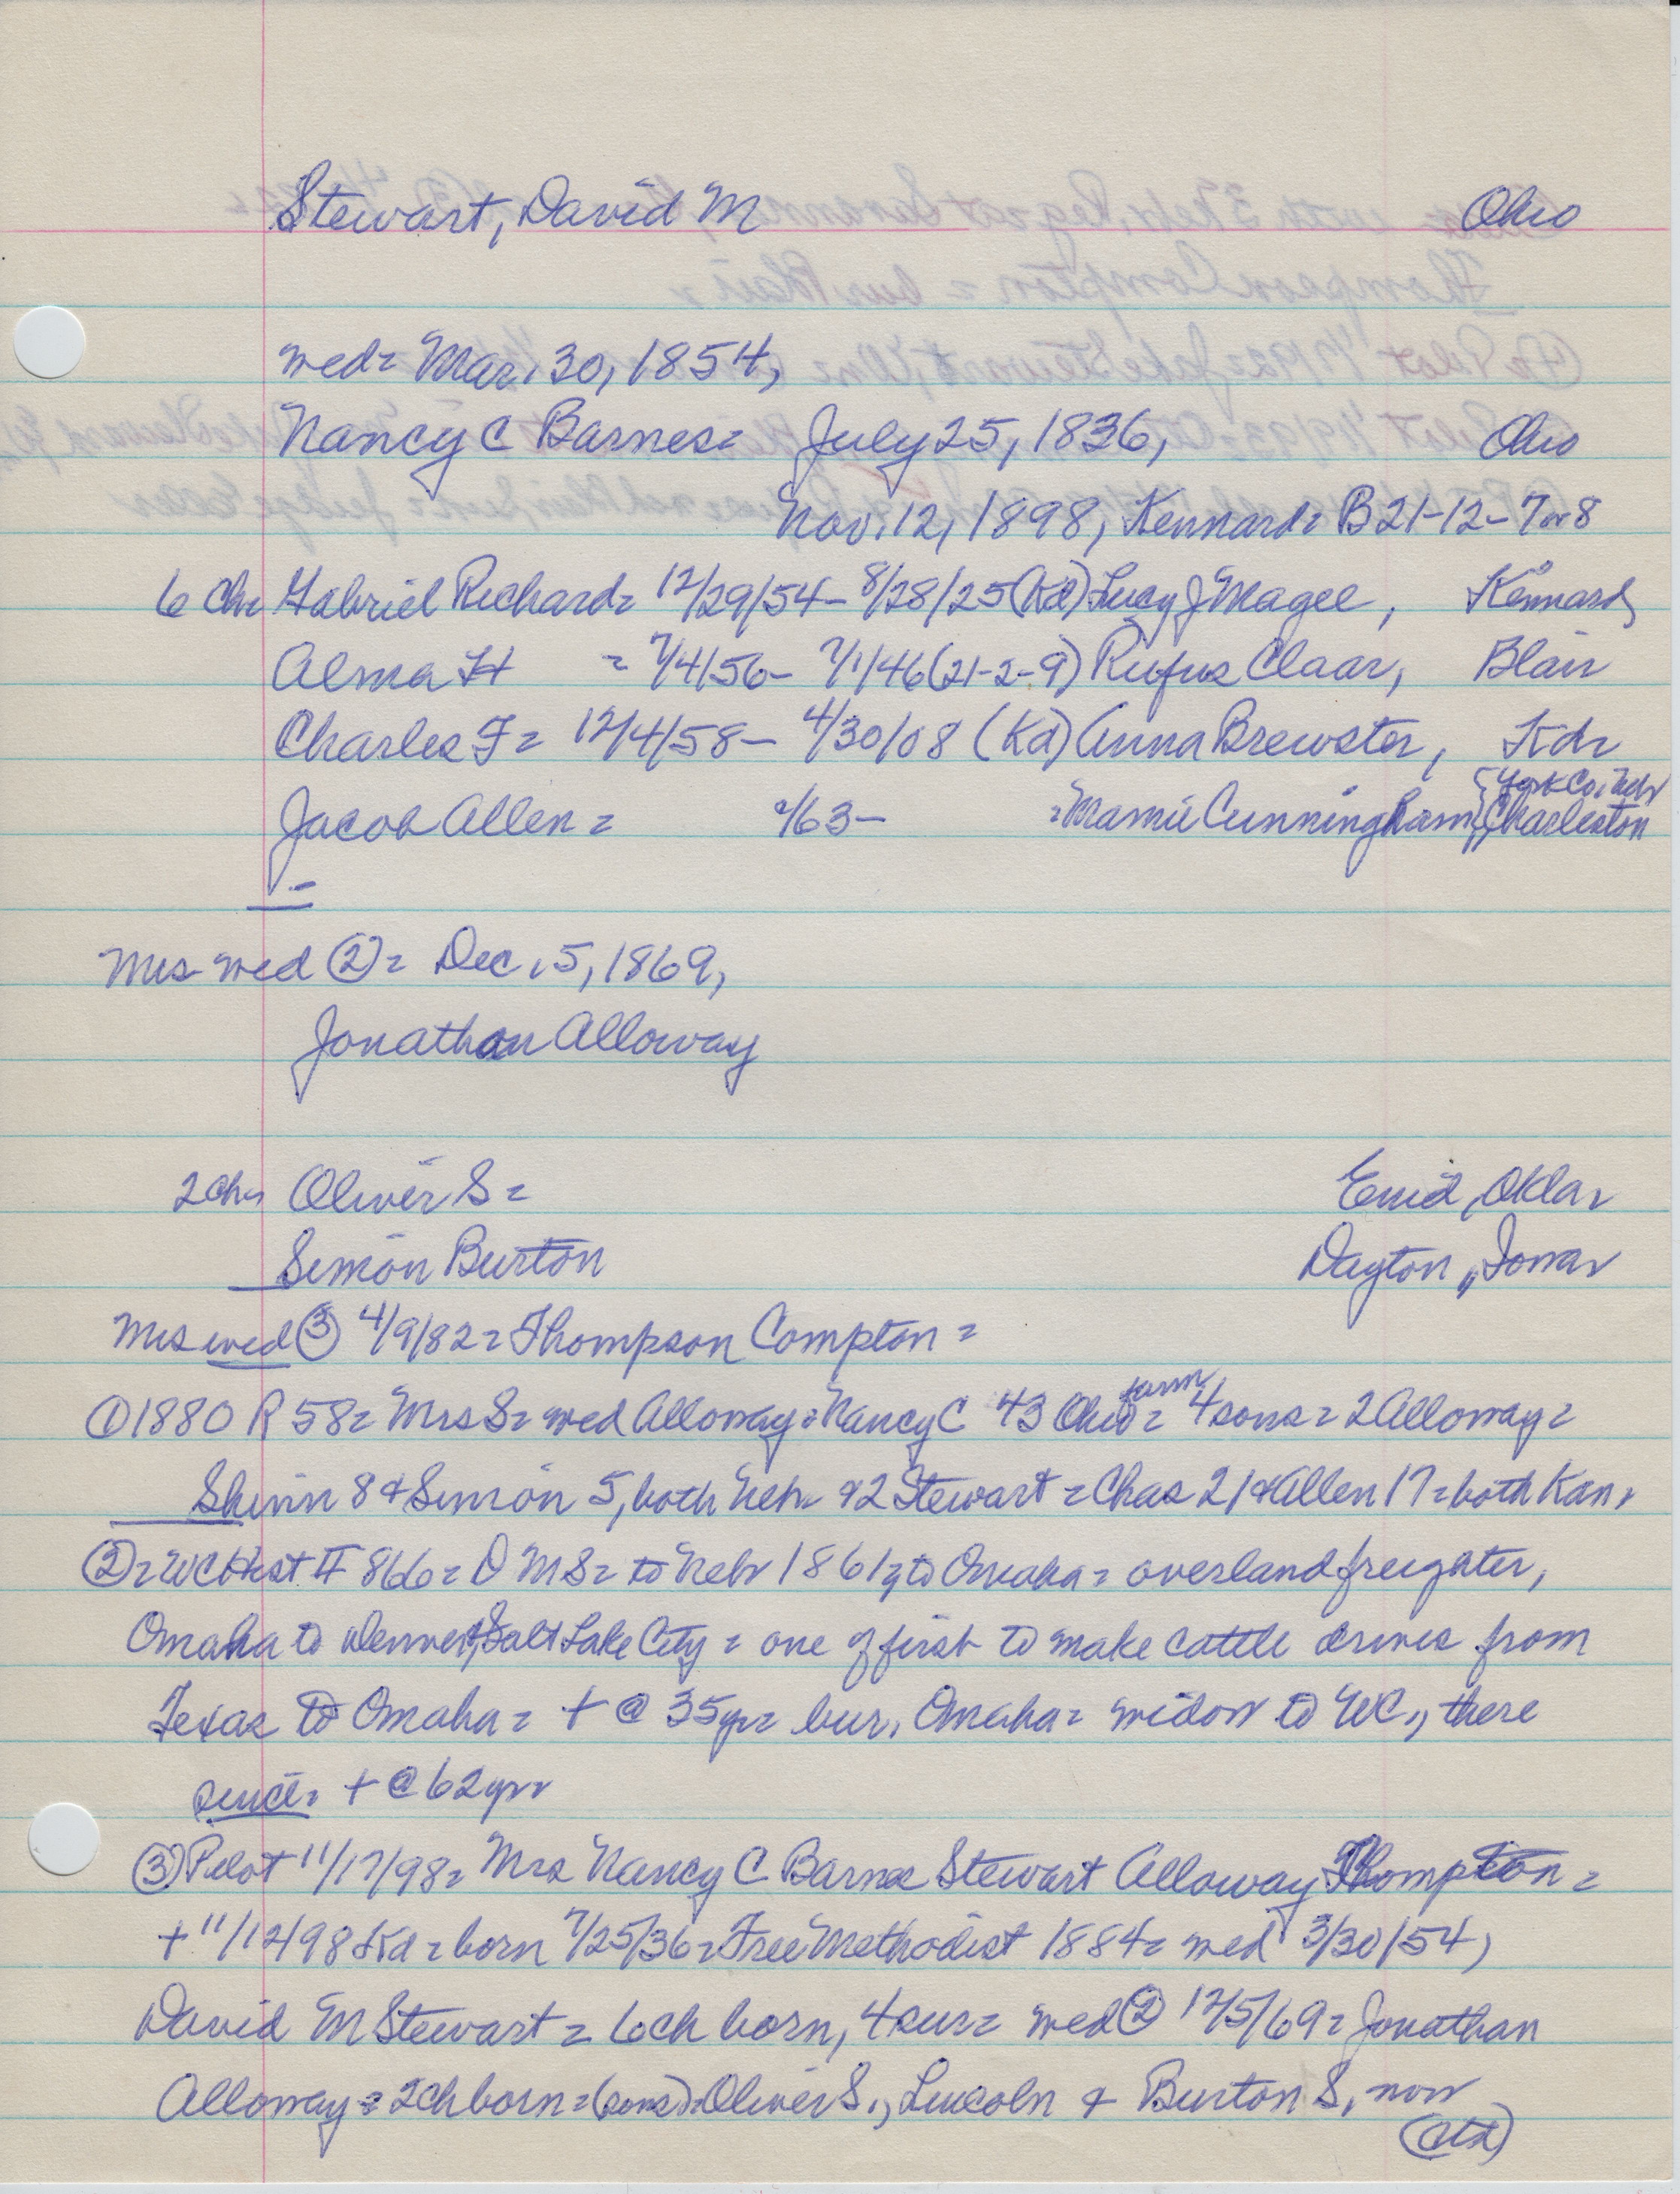 Stewart, David M Ohio
wed= Mar. 30, 1854,
Nancy C Barnes= July 25, 1836, Ohio
Nov. 12, 1898, Kennard= B 21-12-7 or 8
6 ch= Gabriel Richard= 12/29/54- 8/28/25 (Kd) Lucy J Magee, Kennard,
Alma H = 7/4/56- 7/1/46 (21-2-9) Rufus Claar, Blair
Charles F= 12/4/58- 4/30/08 (Kd) Anna Brewster, Kd=
{York Co. Nebr
Jacob Allen = /63- =Mamie Cunningham, {Charleston
Mrs wed ②= Dec. 5, 1869,
Jonathan Alloway
2 ch= Oliver S= Enid, Okla.
Simon Burton Dayton, Iowa
Mrs wed ③ 4/9/82= Thompson Compton =
farm
① 1880 R 58= Mrs S= wed Alloway= Nancy C 43 Ohio= 4 sons= 2 Alloway=
Shirin 8 & Simon 5, both Neb. & 2 Stewart= Chas 21 & Allen 17= both Kan.
②= WCHist II 866= D M S= to Nebr 1861, to Omaha= overland freighter,
Omaha to Denver & Salt Lake City= one of first to make cattle drives from
Texas to Omaha= + @ 35yr= bur. Omaha= widow to WC., there
since= + @ 62yr=
③ Pilot 11/17/98= Mrs Nancy C Barnes Stewart Alloway Thompton=
+ 11/12/98 Kd= born 7/25/36= Free Methodist 1884= wed 3/30/54,
David M Stewart= 6ch born, 4 sur= wed ② 12/5/69= Jonathan
Alloway= 2ch born= (sons)= Oliver S., Lincoln & Burton S. now
(ctd)